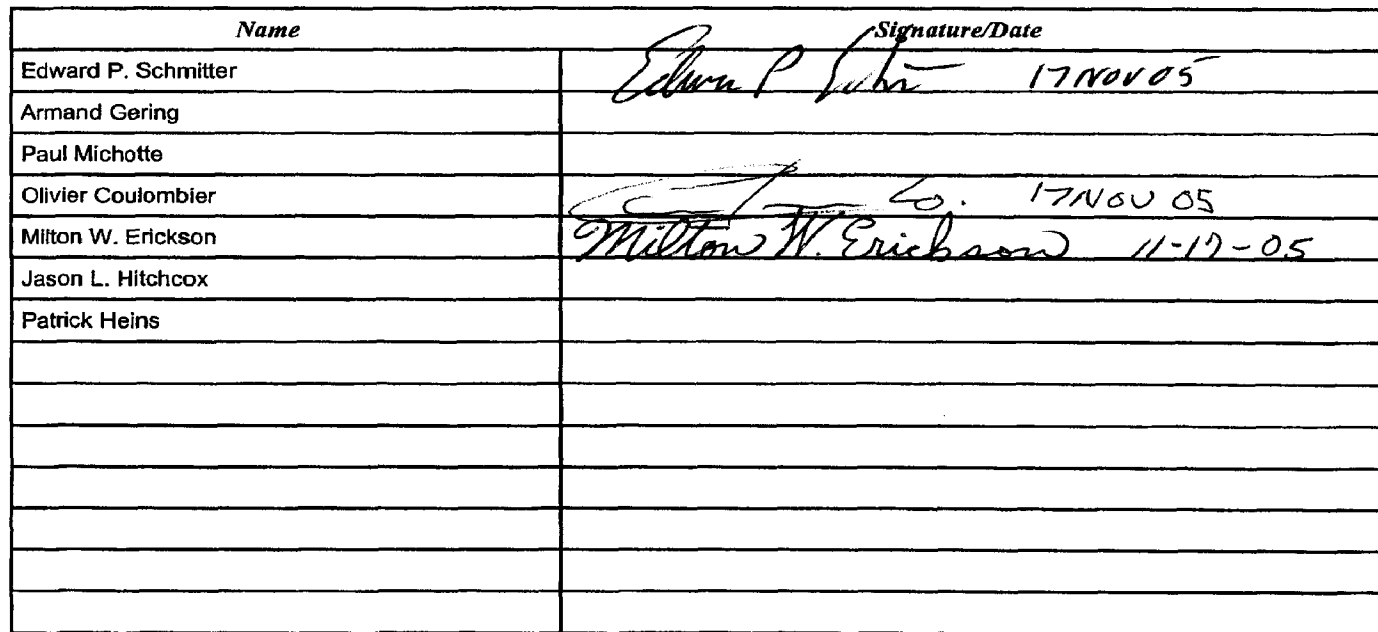 Name Signature/Date
Edward P. Schmitter Edwar P 17 NOV 05
Armand Gering
Paul Michotte
Olivier Coulombier Co. 17 NOV 05
Milton W. Erickson Milton W. Erickson 11-17-05
Jason L. Hitchcox
Patrick Heins